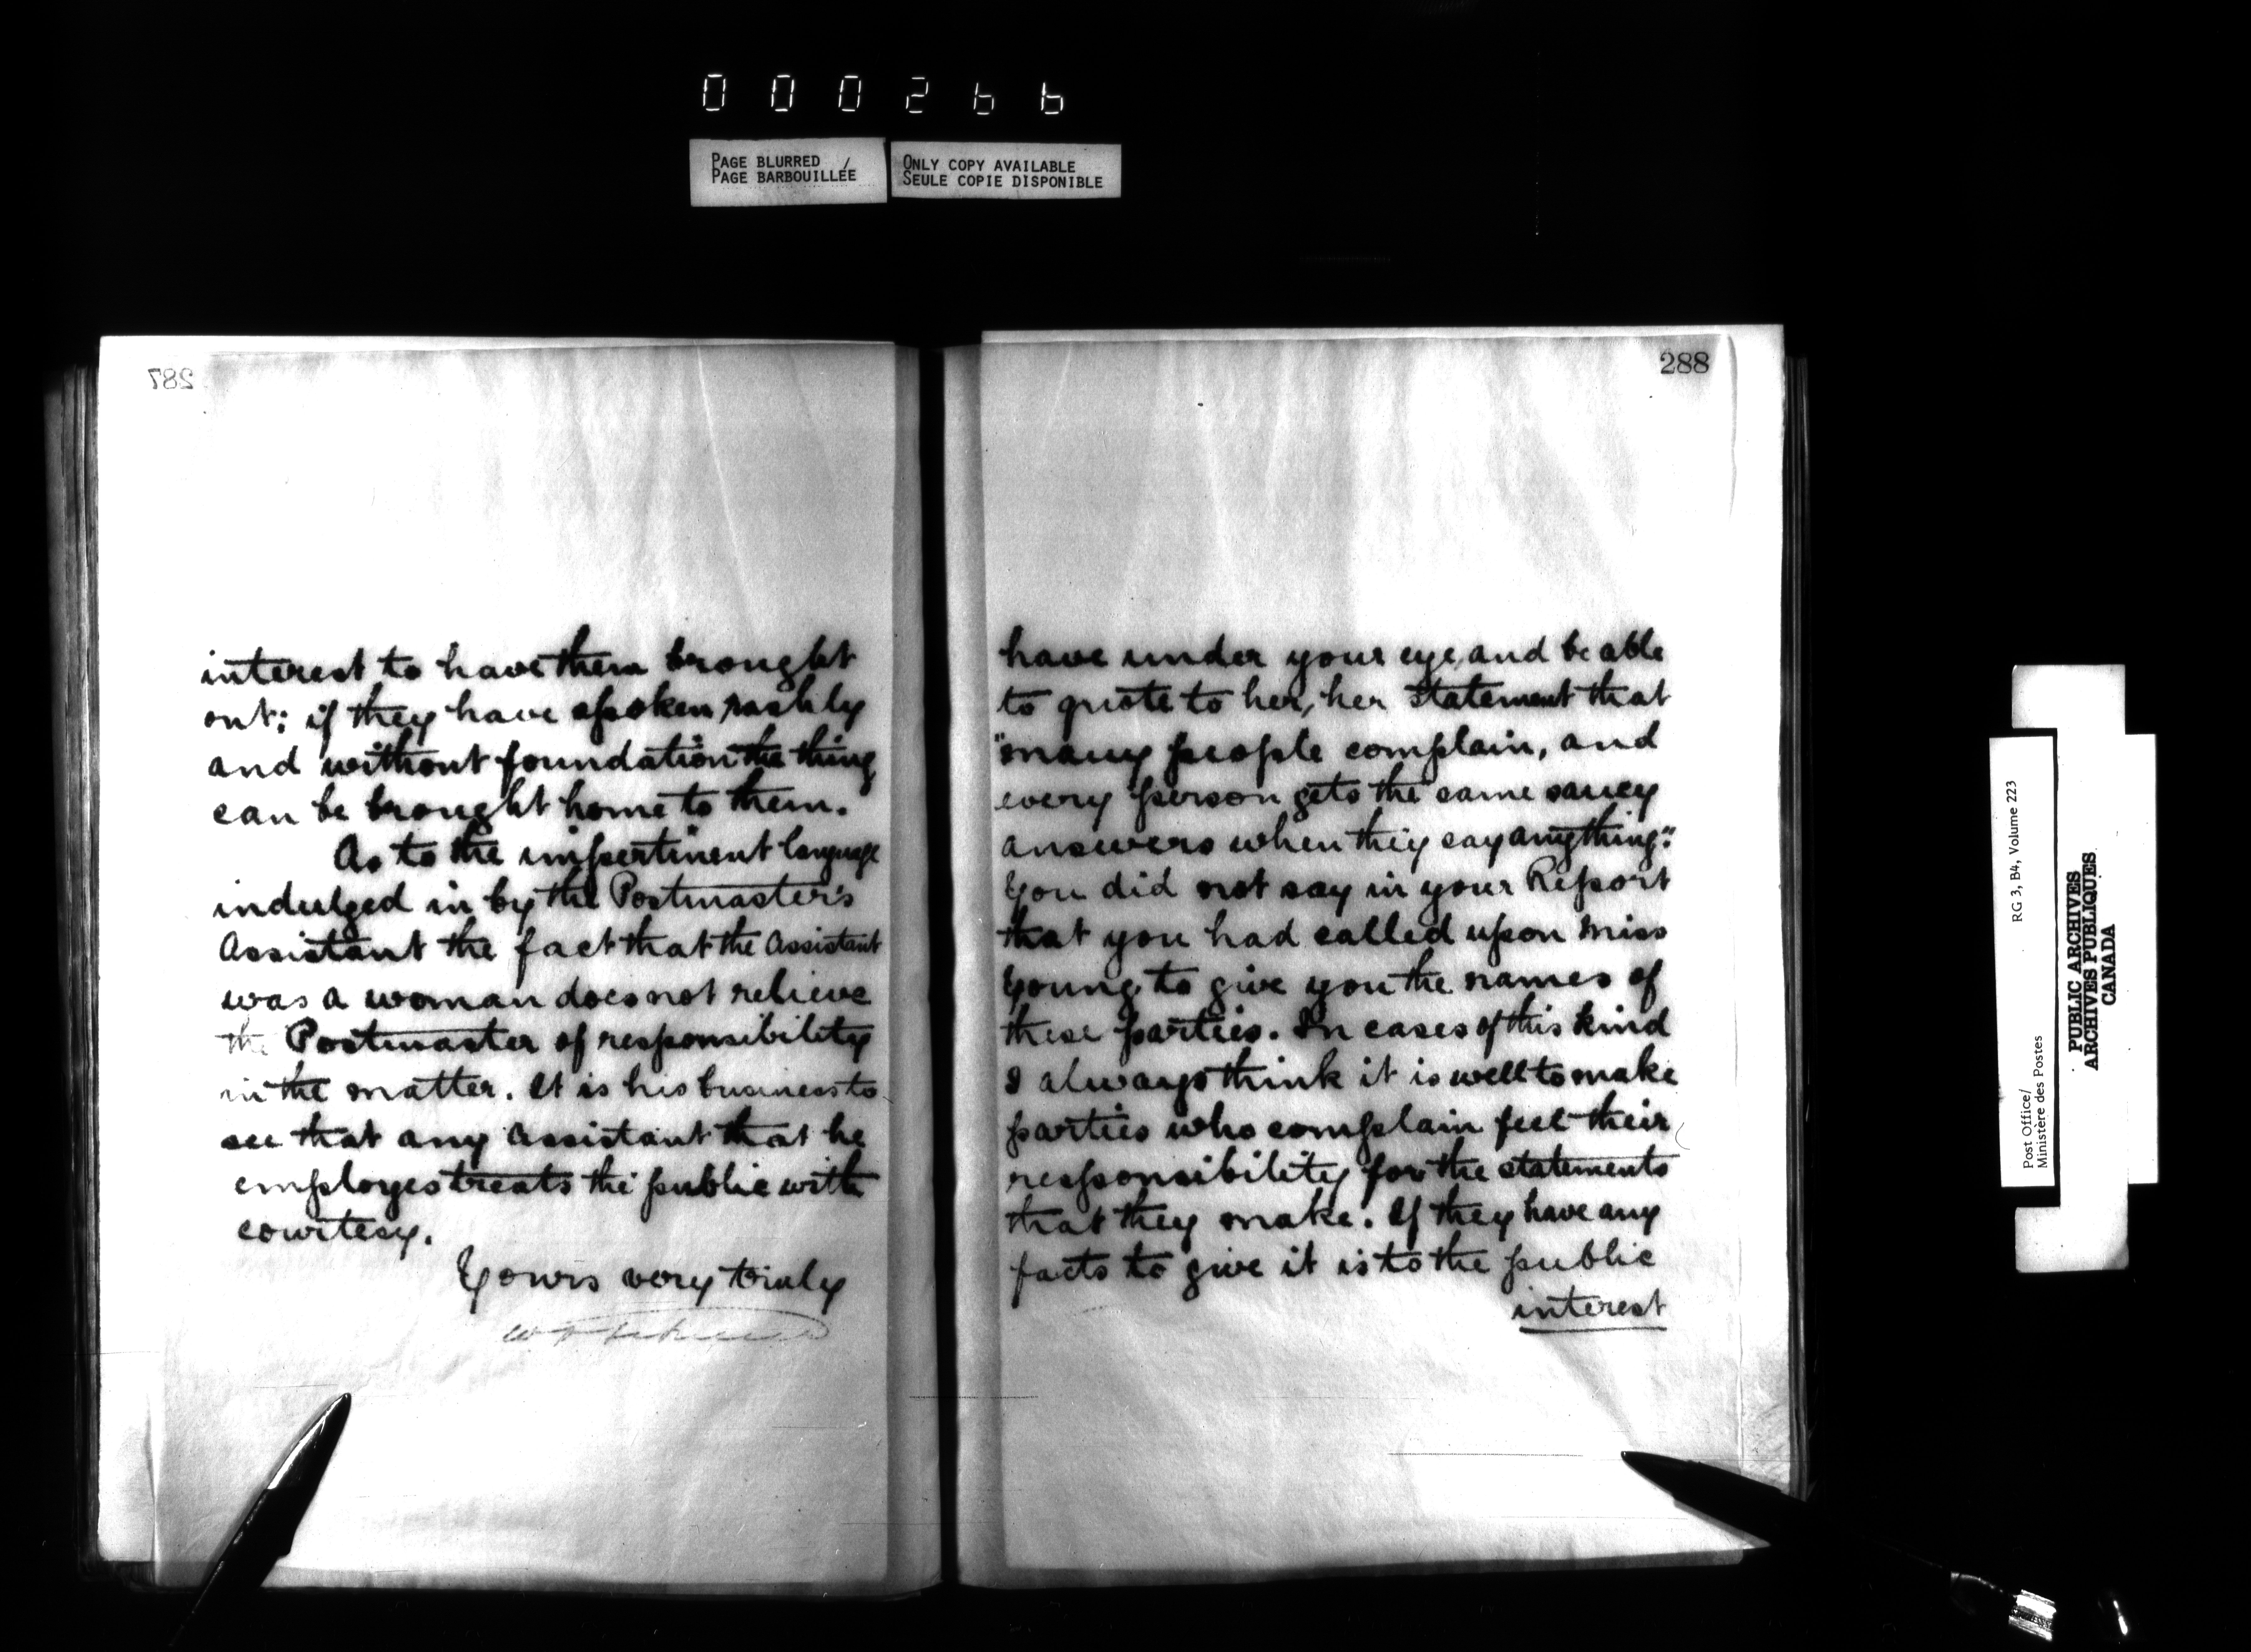 000266
PAGE BLURRED /
PAGE BARBOUILLÉE
ONLY COPY AVAILABLE
SEULE COPIE DISPONIBLE
287
interest to have them brought
out: if they have spoken rashly
and without foundation the thing
can be brought home to them.
As to the impertinent language
indulged in by the Postmaster's
Assistant the fact that the Assistant
was a woman does not relieve
the Postmaster of responsibility
in the matter. It is his business to
see that any Assistant that he
employes treats the public with
courtesy.
Yours very truly
288
have under your eye, and be able
to quote to her, her statement that
"many people complain, and
every person gets the same saucy
answers when they say anything."
You did not say in your Report
that you had called upon Miss
Young to give you the names of
these parties. In cases of this kind
I always think it is well to make
parties who complain feel their
responsibility for the statements
that they make. If they have any
facts to give it is to the public
interest
Post Office/
Ministère des Postes
RG 3, B4, Volume 223
PUBLIC ARCHIVES
ARCHIVES PUBLIQUES
CANADA